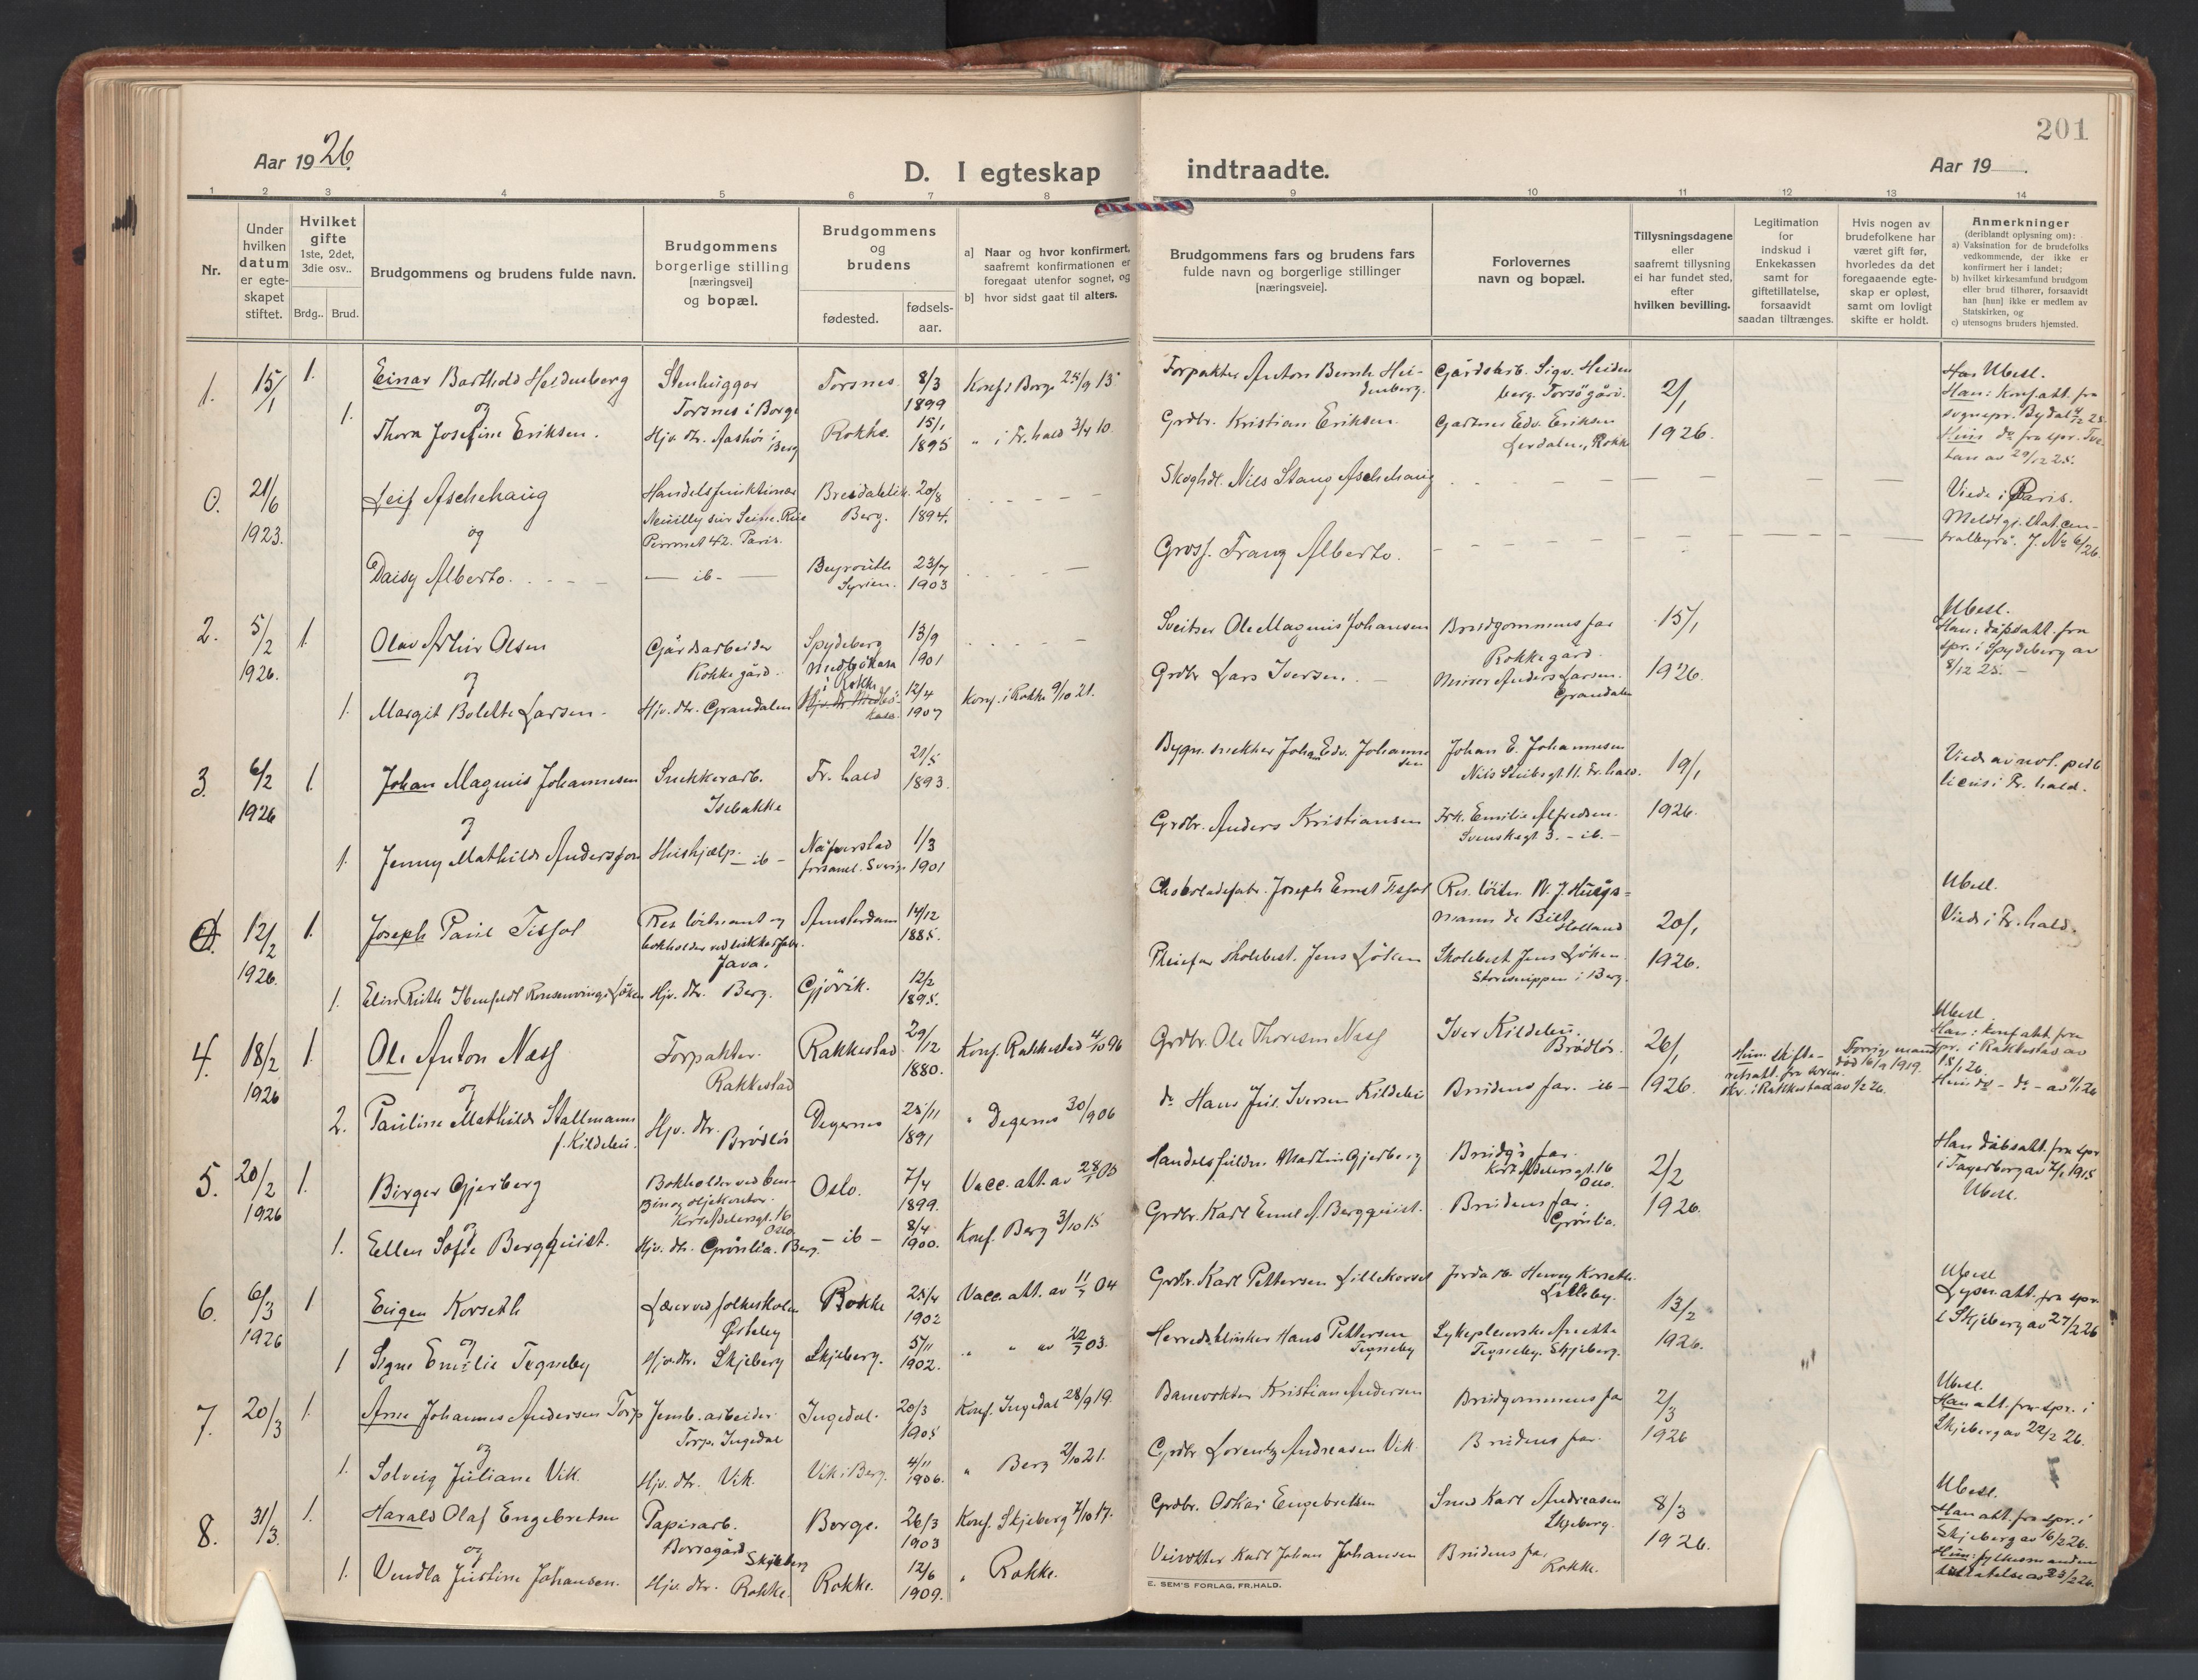 201
Aar 1926.
D. I egteskap indtraadte.
Aar 19
1 2 3 4 5 6 7 8 9 10 11 12 13 14
Nr.
Under
hvilken
datum
er egte-
skapet
stiftet.
Hvilket
gifte
1ste, 2det,
3die osv..
Brdg.. Brud.
Brudgommens og brudens fulde navn.
Brudgommens
borgerlige stilling
[næringsvei]
og bopæl.
Brudgommens
og
brudens
fødested.
fødsels-
aar.
a] Naar og hvor konfirmert,
saafremt konfirmationen er
foregaat utenfor sognet, og
b] hvor sidst gaat til alters.
Brudgommens fars og brudens fars
fulde navn og borgerlige stillinger
[næringsveie].
Forlovernes
navn og bopæl.
Tillysningsdagene
eller
saafremt tillysning
ei har fundet sted,
efter
hvilken bevilling.
Legitimation
for
indskud i
Enkekassen
samt for
giftetillatelse,
forsaavidt
saadan tiltrænges.
Hvis nogen av
brudefolkene har
været gift før,
hvorledes da det
foregaaende egte-
skap er opløst,
samt om lovligt
skifte er holdt.
Anmerkninger
(deriblandt oplysning om):
a) Vaksination for de brudefolks
vedkommende, der ikke er
konfirmert her i landet;
b) hvilket kirkesamfund brudgom
eller brud tilhører, forsaavidt
han [hun] ikke er medlem av
Statskirken, og
c) utensogns bruders hjemsted.
1. 15/1 1.
Einar Barthold Heidenberg
Stenhugger
Torsnes i Borge
Torsnes
8/3
1899
Konf. i Borge 25/9 13
Forpakter Anton Bernh. Hei-
denberg.
Gårdsarb. Sigv. Heiden
berg. Torsögård.
2/1
1926.
Ubesl.
Han: Konf.att. fra
og
1. Thora Josefine Eriksen.
Hjv. dtr.
Berg
Rokke.
15/1
1895
" i Fr. hald 3/4 10.
Grdbr. Kristian Eriksen.
Gartner Edv. Eriksen
Lerdalen, Rokke
0. 21/6
1923.
Leif Aschehaug
og
Handelsfunktionær
Neuilly sur Seine. Rue
Perronet 42. Paris.
Berg.
20/8
1894.
Skoghdl. Nils Stang Aschehaug
Viede i Paris.
Meldt gj. Stat. cen-
tralbyrå. J. No 6/26.
Daisy Alberto.
— ib —
Beyrouth
Syrien.
23/7
1903
Gross. Franz Alberto.
2. 5/2
1926.
1.
Olav Artur Olsen
og
Gårdsarbeider
Rokke gård.
Spydeberg
13/9
1901
Sveitser Ole Magnus Johansen
Brudgommens far
Rokke gård.
15/1
1926.
Ubesl.
Han: dåpsatt. fra
spr. i Spydeberg av
8/12 25.
1. Margit Bolette Larsen
Hjv. dtr. Grandalen
i Rokke
12/4
1907
Konf. i Rokke 9/10 21.
Grdbr Lars Iversen.
Murer Anders Larsen.
Grandalen
3. 6/2
1926
1.
Johan Magnus Johannesen
og
Snekkerarb.
Isebakke
Fr. hald
21/5
1893.
Bygn. snekker Johan Edv. Johannes
sen
Johan E. Johannesen
Nils Stubsgt. 11. Fr. hald.
19/1
1926.
Viede av not. pub
licus i Fr. hald.
1. Jenny Mathilde Andersson
Hushjælp. — ib —
Naverstad
forsaml. Sverige
1/3
1901
Grdbr. Anders Kristiansen
Frk. Emilie Alfredsen.
Svenskegt 3. – ib. –
12/2
1926.
1.
Joseph Paul Tissot
Res. löitnant og
bokholder ved sukkerfabr.
Java.
Amsterdam
14/12
1885.
Chokoladefabr. Joseph Ernst Tissot
Holland
20/1
1926.
Ubesl.
Viede i Fr. hald.
1.
Hjv. dtr. Berg.
Gjövik.
12/2
1895.
Pleiefar Skolebest. Jens Löken
Skolebest Jens Löken.
i Berg.
4. 18/2
1926
1.
Ole Anton Næss
og
Forpakter.
Rakkestad
Rakkestad.
29/12
1880.
Konf. Rakkestad 4/10 96
Grdbr. Ole Thoresen Næss
Iver Kildeleu.
Brödlös.
26/1
1926.
Ubesl.
Han: konf.att fra
spr. i Rakkestad av
18/1 26.
Hun do – do – av
2. Pauline Mathilde Stallmann
f. Kildeleu.
Hjv. dtr.
Brödlös
Degernes
25/11
1891
" Degernes 30/9 06
do Hans Jul. Iversen Kildeleu
Brudens far. – ib –
5. 20/2
1926
1.
Birger Gjerberg
og
Bokholder ved Ben-
zin og oljekontor.
Kort Adelersgt. 16
Oslo.
Oslo.
7/4
1899.
Vacc. att. av
Martin Gjerberg
Brudg's far.
Kort Adelersgt. 16
Oslo.
2/2
1926.
Han dåbsatt. fra spr
i Fagerborg av 7/1 1915
Ubesl.
1. Ellen Sofie Bergquist.
Hjv. dtr. Grönlia. Berg.
– ib –
8/4
1900.
Konf. Berg 3/10 15
Grdbr. Karl Emil A. Bergquist.
Brudens far.
Grönlia.
6. 6/3
1926
1
Eugen Korseth
og
Lærer ved folkeskolen
Østeby
Rokke
25/4
1902
Vacc. att. av 11/7 04
Grdbr. Karl Pettersen Lillekorset
Henry Korseth.
Lilleby.
13/2
1926.
Ubesl
Lysn.att. fra spr
i Skjeberg av 27/2 26
1 Signe Emilie Tegneby
Hjv. dtr. Skjeberg
Skjeberg.
5/11
1902.
" " av 03.
Hans Pettersen
Tegneby
Sykepleierske
Tegneby. Skjeberg.
7. 20/3
1.
Arne Johannes Andersen Torp
og
Jernb. arbeider
Torp. Ingedal
Ingedal.
20/3
1905
Konf. Ingedal 28/9 19.
Banevokter Kristian Andersen
Brudgommens far
2/3
1926
Ubesl.
Han att. fra spr. i
Skjeberg av 22/2 26.
1. Solveig Juliane Vik.
Hjv. dtr. Vik.
Vik i Berg.
4/11
1906.
" Berg 2/10 21.
Grdbr. Lorentz Andreasen Vik.
Brudens far.
8. 31/3.
1.
Harald Olaf Engebretsen
og
Papirarb.
Borregård Skjeberg
Borge.
26/3
1903
Konf. Skjeberg 7/10 17.
Grdbr. Oskar Engebretsen
Smed Karl Andreasen
Skjeberg.
8/3
1926.
Ubesl.
Han att. fra spr. i
Skjeberg av 16/2 26.
Hun: fylkesmanden
tillatelse av 23/2 26.
1. Vendla Justine Johansen.
Hjv. dtr. Rokke.
Rokke.
12/6
1909.
" Rokke.
Veivokter Karl Johan Johansen
Brudens far,
Rokke.
E. SEM'S FORLAG, FR.HALD.